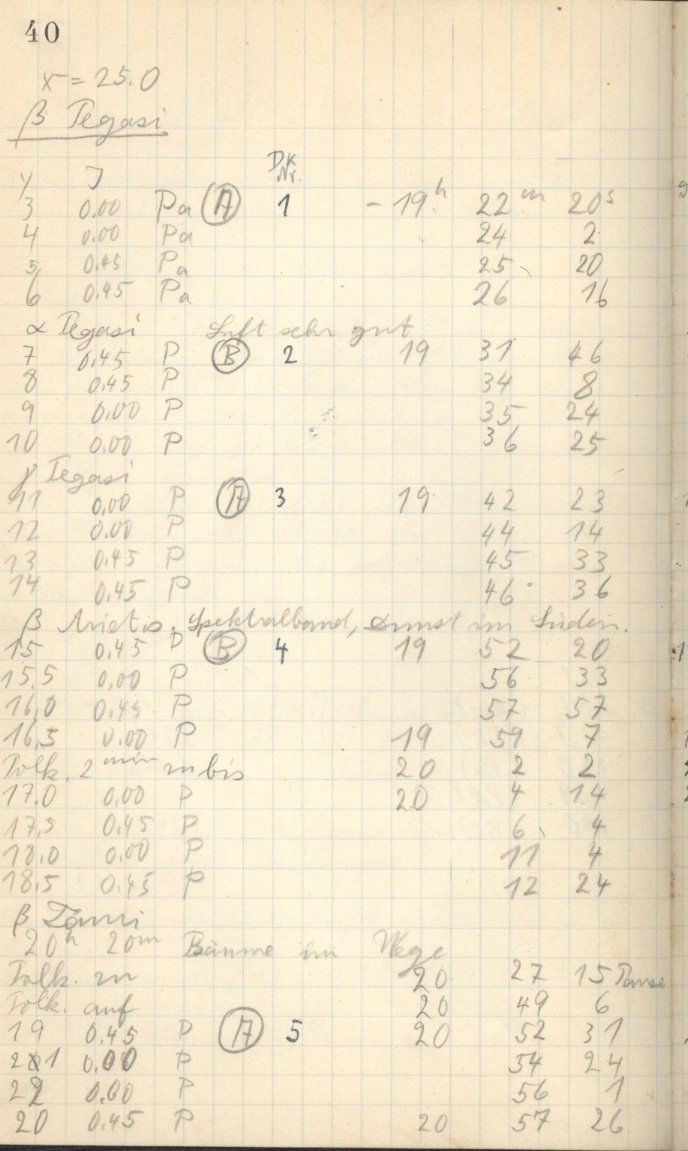 40
x = 25.0
β Pegasi
D.K. Nr.
y J
3 0.00 Pa A 1 - 19h 22m 20s
4 0.00 Pa 24 2
5 0.45 Pa 25 20
6 0.45 Pa 26 16
α Pegasi Luft sehr gut
7 0.45 P B 2 19 31 46
8 0.45 P 34 8
9 0.00 P 35 24
10 0.00 P 36 25
γ Pegasi
11 0.00 P A 3 19 42 23
12 0.00 P 44 14
13 0.45 P 45 33
14 0.45 P 46 36
β Spektralband, Dunst im Süden.
15 0.45 P B 4 19 52 20
15.5 0,00 P 56 33
16,0 0.45 P 57 57
16,5 0.00 P 19 59 7
Polk. 2 min zu bis 20 2 2
17.0 0,00 P 20 4 14
17,5 0.45 P 6 4
18.0 0.00 P 11 4
18.5 0.45 P 12 24
β Tauri
20h 20m Bäume im Wege
Polk. zu 20 27 15
Polk. auf 20 49 6
19 0.45 P A 5 20 52 31
21 0.00 P 54 24
22 0.00 P 56 1
20 0.45 P 20 57 26